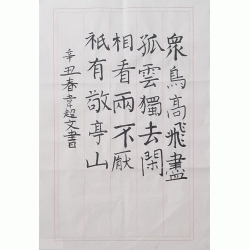 衆鳥高飛盡
孤雲獨去閑
相看兩不厭
祇有敬亭山
辛丑春韋超文書